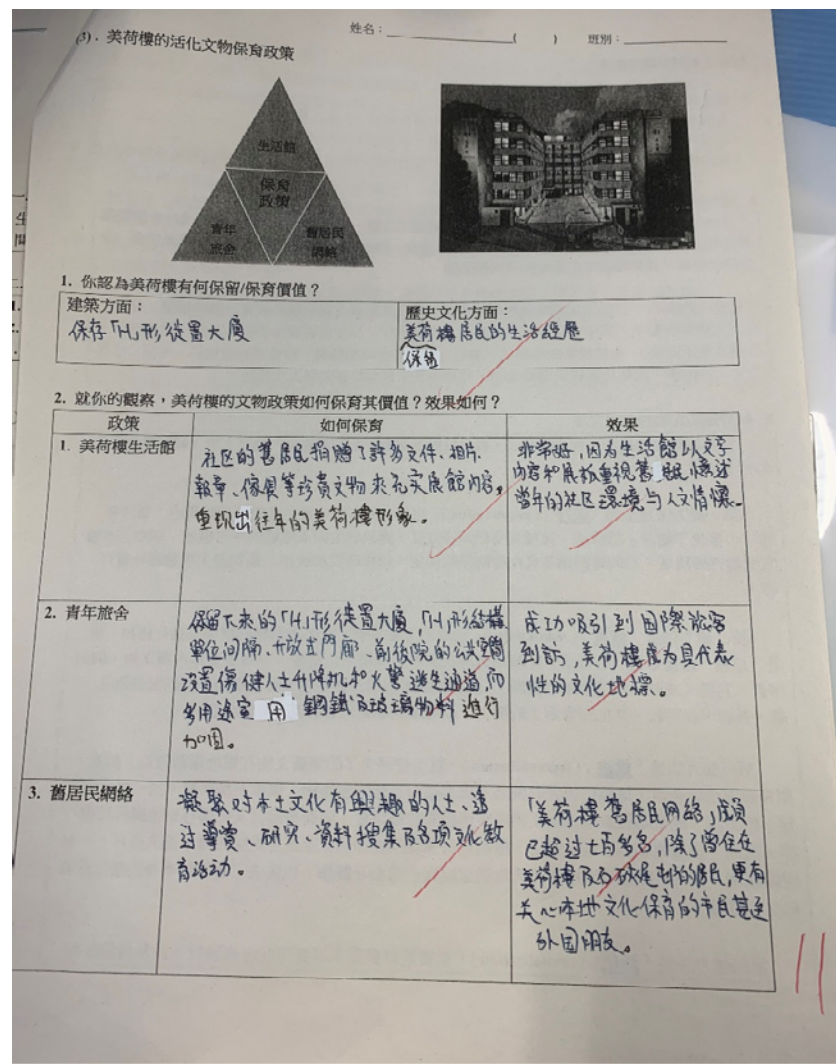 姓名：__________( ) 班別：__________
(3)．美荷樓的活化文物保育政策
生活館
保育
政策
青年
旅舍
舊居民
網絡
1. 你認為美荷樓有何保留/保育價值？
建築方面：
保存「H」形徙置大廈
歷史文化方面：
美荷樓居民的生活經歷
保留
2. 就你的觀察，美荷樓的文物政策如何保育其價值？效果如何？
政策
如何保育
效果
1. 美荷樓生活館
社区的舊居民捐贈了許多文件、相片、
報章、傢俱等珍貴文物來充实展館内容，
重现出往年的美荷樓形象。
非常好，因为生活館以文字
内容和展板重現舊居民憶述
當年的社区環境与人文情懷。
2. 青年旅舍
保留下來的「H」形徙置大廈，「H」形結構
單位间隔、开放式門廊、前後院的公共空間
設置傷健人士升降机和火警逃生通道，而
多用途室 用 鋼鐵及玻璃物料 進行
加固。
成功吸引到国際旅客
到訪，美荷樓成为具代表
性的文化地標。
3. 舊居民網絡
凝聚对本土文化有興趣的人士、透
过導賞、研究、資料搜集及各项文化教
育活动。
「美荷樓舊居民网絡」成員
已超过七百多名，除了曾住在
美荷樓及石硤尾邨的居民，更有
关心本地文化保育的市民甚至
外国朋友。
11